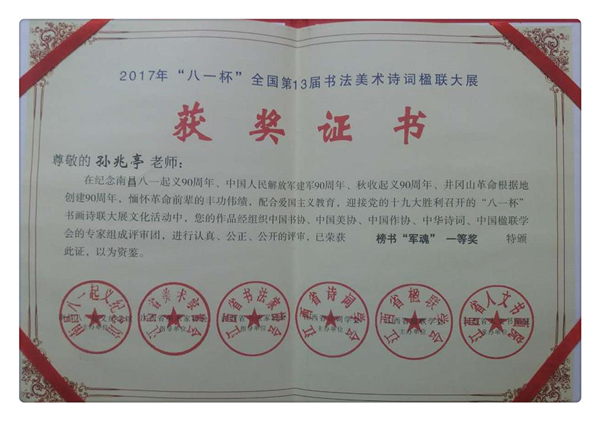 2017年“八一杯”全国第13届书法美术诗词楹联大展
获奖证书
尊敬的 孙兆亭 老师:
在纪念南昌八一起义90周年、中国人民解放军建军90周年、秋收起义90周年、井冈山革命根据地
创建90周年,缅怀革命前辈的丰功伟绩,配合爱国主义教育,迎接党的十九大胜利召开的“八一杯”
书画诗联大展文化活动中,您的作品经组织中国书协、中国美协、中国作协、中华诗词、中国楹联学
会的专家组成评审团,进行认真、公正、公开的评审,已荣获 榜书“军魂” 一等奖 特颁
此证,以为资鉴。
南昌八一起义纪念馆
江西省美术家协会
江西省书法家协会
江西省诗词学会
江西省楹联学会
江西省人文书画院